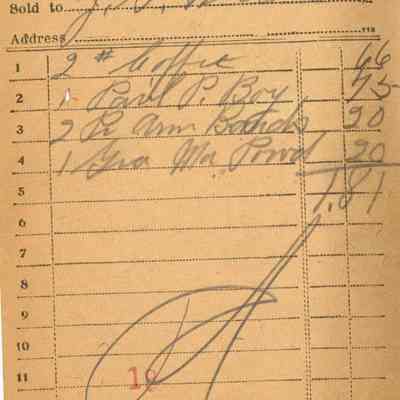 Sold to J.
Address
1 2 # Coffee 66
2 1 Paul P. Boy 75
3 2 Arm Bands 20
4 1 Powd 20
5 1.81
6
7
8
9
10
11 19